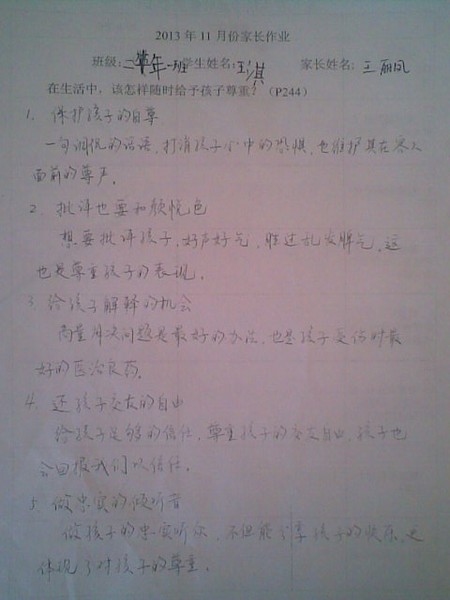 2013年11月份家长作业
班级:二年一班 学生姓名:王淇 家长姓名:王丽凤
在生活中，该怎样随时给予孩子尊重？（P244）
1. 保护孩子的自尊
一句调侃的话语,打消孩子心中的恐惧,也维护其在客人
面前的尊严。
2. 批评也要和颜悦色
想要批评孩子,好声好气,胜过乱发脾气,这
也是尊重孩子的表现。
3. 给孩子解释的机会
商量解决问题是最好的办法,也是孩子受伤时最
好的医治良药。
4. 还孩子交友的自由
给孩子足够的信任,尊重孩子的交友自由,孩子也
会回报我们以信任。
5. 做忠实的倾听者
做孩子的忠实听众,不但能分享孩子的快乐,更
体现了对孩子的尊重。